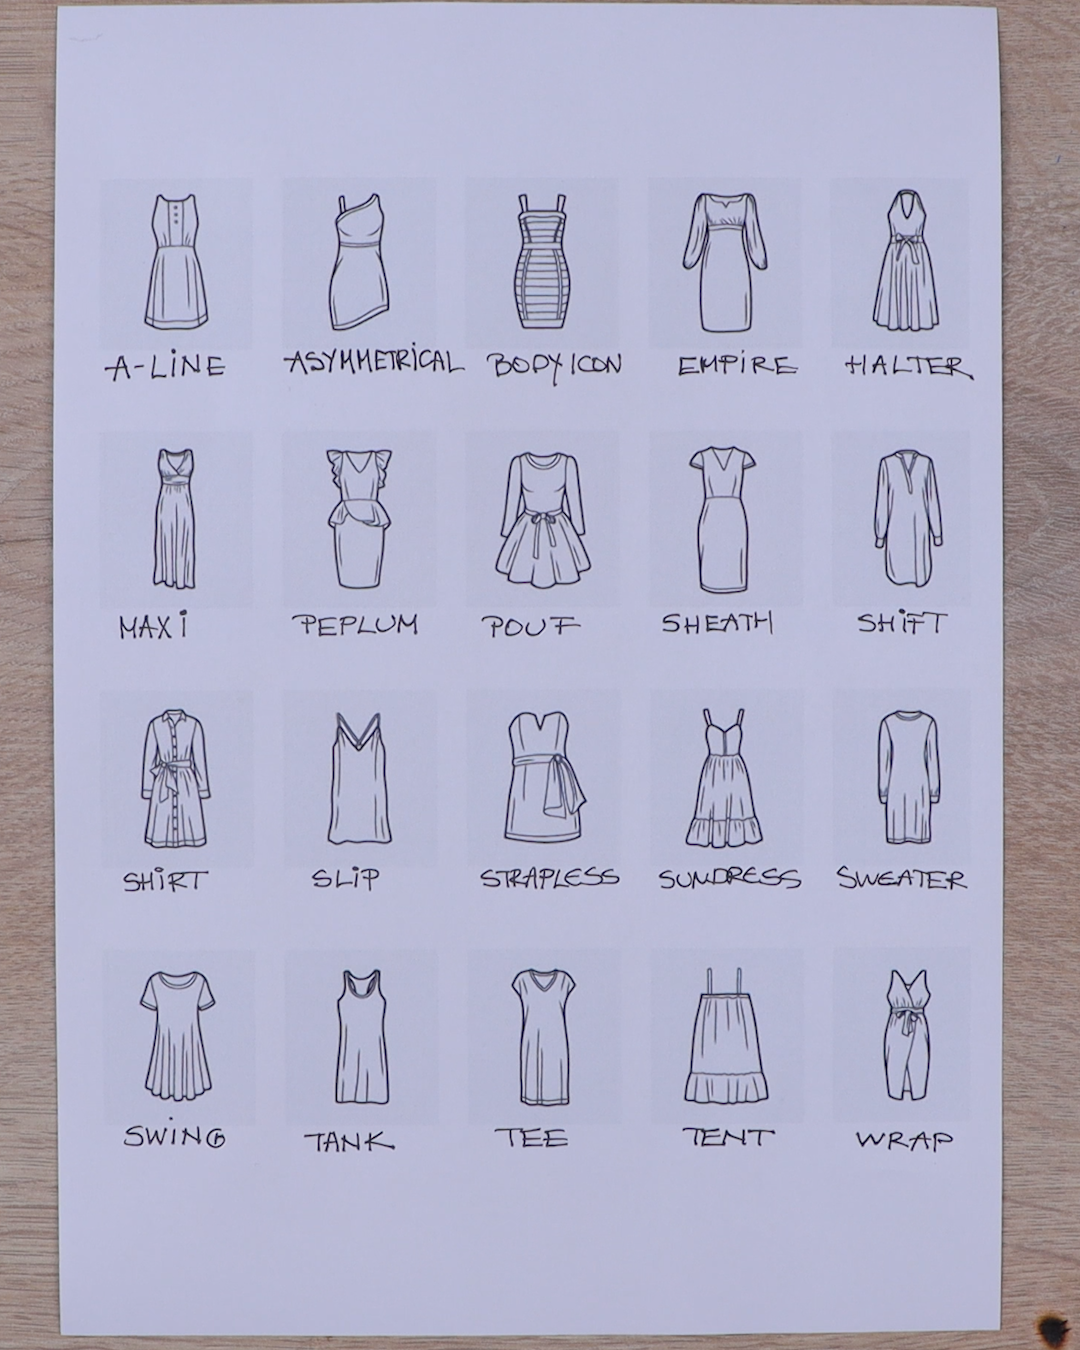 A-LiNE ASYMMETRICAL BODYICON EMPiRE HALTER
MAXi PEPLUM POUF SHEATH SHiFT
SHiRT SLiP STRAPLESS SUNDRESS SWEATER
SWiNG TANK TEE TENT WRAP